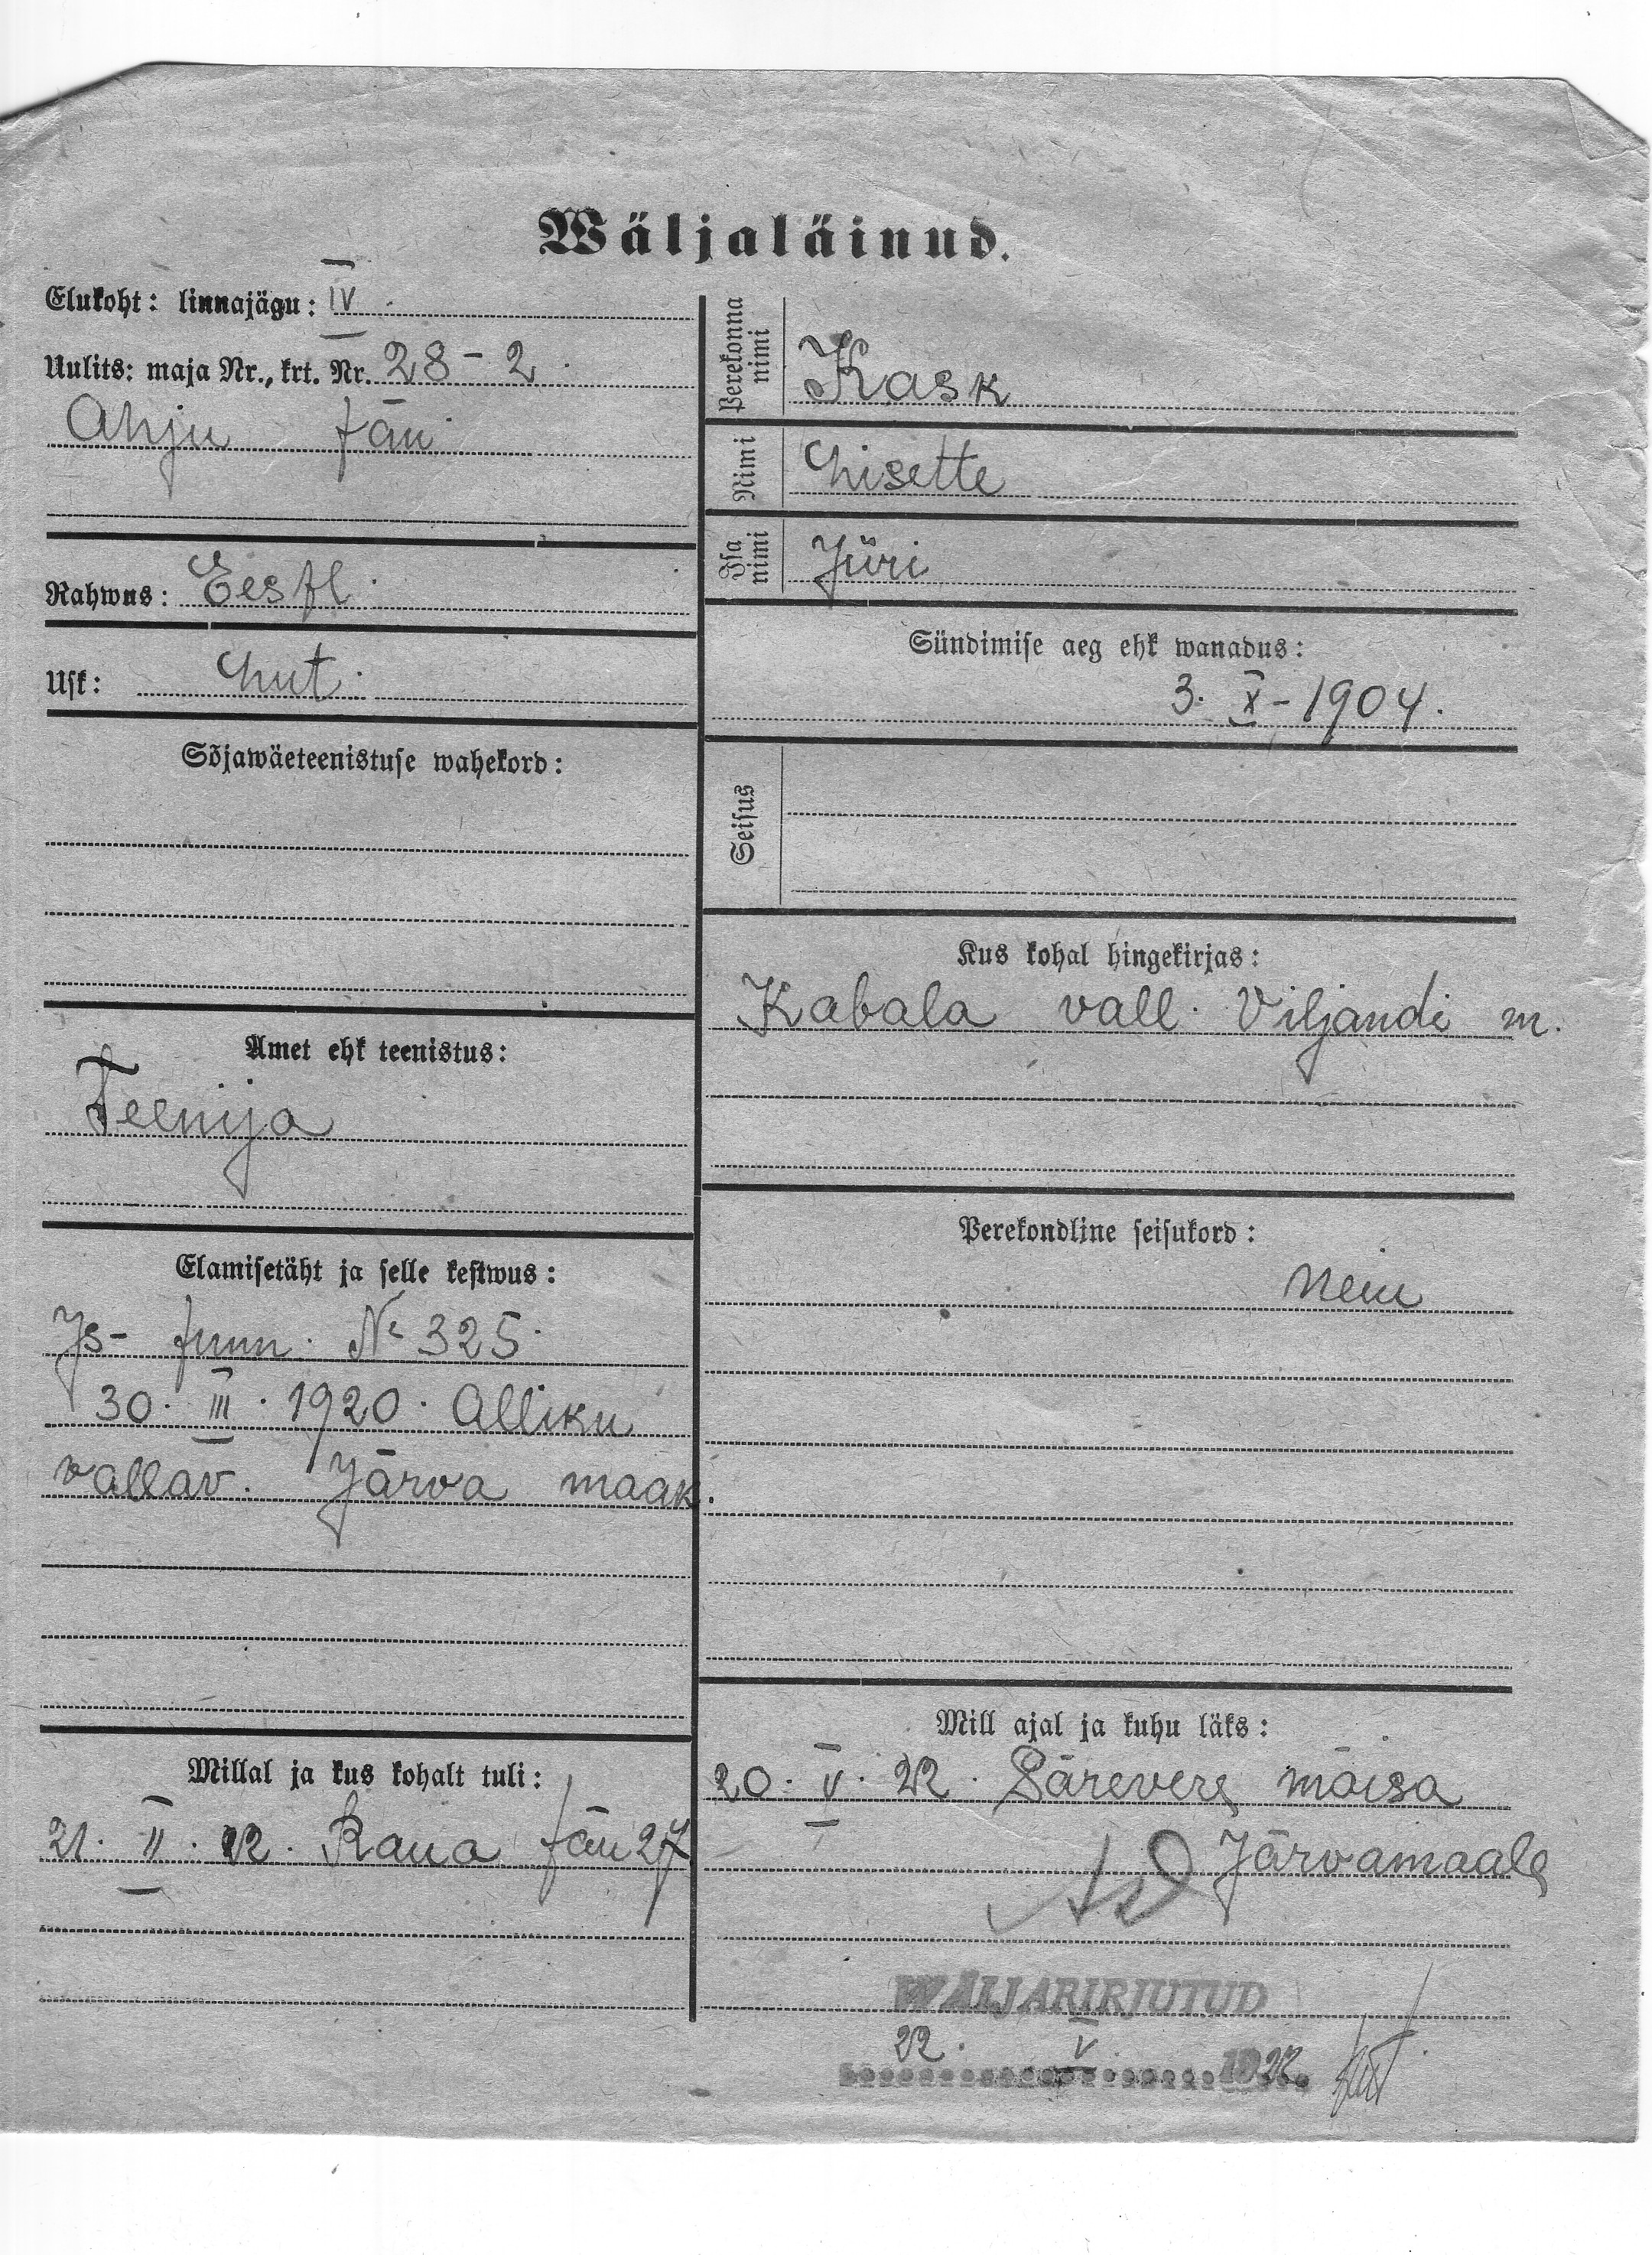 Wäljaläinud.
Elukoht: linnajägu: IV.
Uulits: maja Nr., krt. Nr. 28 - 2.
Ahju tän.
Rahwus: Eestl.
Usk: Lut.
Sõjawäeteenistuse wahekord:
Amet ehk teenistus:
Teenija
Elamisetäht ja selle kestwus:
Is- tunn. № 325.
30. III. 1920. Alliku
vallav. Järva maak.
Millal ja kus kohalt tuli:
21. II. 22. Raua tän 27
Perekonna nimi
Kask
Nimi
Lisette
Isa nimi
Jüri
Sündimise aeg ehk wanadus:
3. X - 1904.
Seisus
Kus kohal hingekirjas:
Kabala vall. Viljandi m.
Perekondline seisukord:
Neiu
Mill ajal ja kuhu läks:
20. V. 22. Särevere mõisa
Järvamaale
WÄLJAKIRJUTUD
22. V 1922.